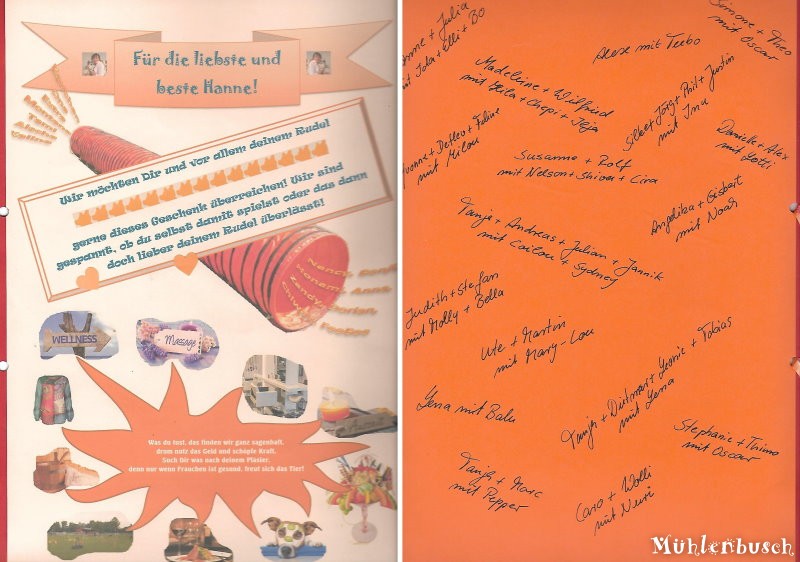 Für die liebste und
beste Hanne!
Wir möchten Dir und vor allem deinem Rudel
gerne dieses Geschenk überreichen! Wir sind
gespannt, ob du selbst damit spielst oder das dann
doch lieber deinem Rudel überlässt!
WELLNESS
Massage
Was du tust, das finden wir ganz sagenhaft,
drum nutz das Geld und schöpfe Kraft.
Such Dir was nach deinem Pläsier,
denn nur wenn Frauchen ist gesund, freut sich das Tier!
+ Julia
mit Jola + Elli + Bo
Simone + Theo
mit Oscar
mit Turbo
Madeleine + Wilfried
mit Bella + Chapi + Joja
Silke + Jörg + Phil + Justin
mit Inu
Daniela + Alex
mit Lotti
Yvonne + Detlev + Feline
mit Milou
Susanne + Rolf
mit Nelson + Shiva + Cira
Angelika + Gisbert
mit Noah
Tanja + Andreas + Julian + Jannik
mit Cailou + Sydney
Judith + Stefan
mit Molly + Bella
Ute + Martin
mit Mary-Lou
Tanja + Dietmar + Leonie + Tobias
mit Lena
Lena mit Balu
Stephanie + Thimo
mit Oscar
Tanja + Marc
mit Pepper
Caro + Wolli
mit
Mühlenbusch